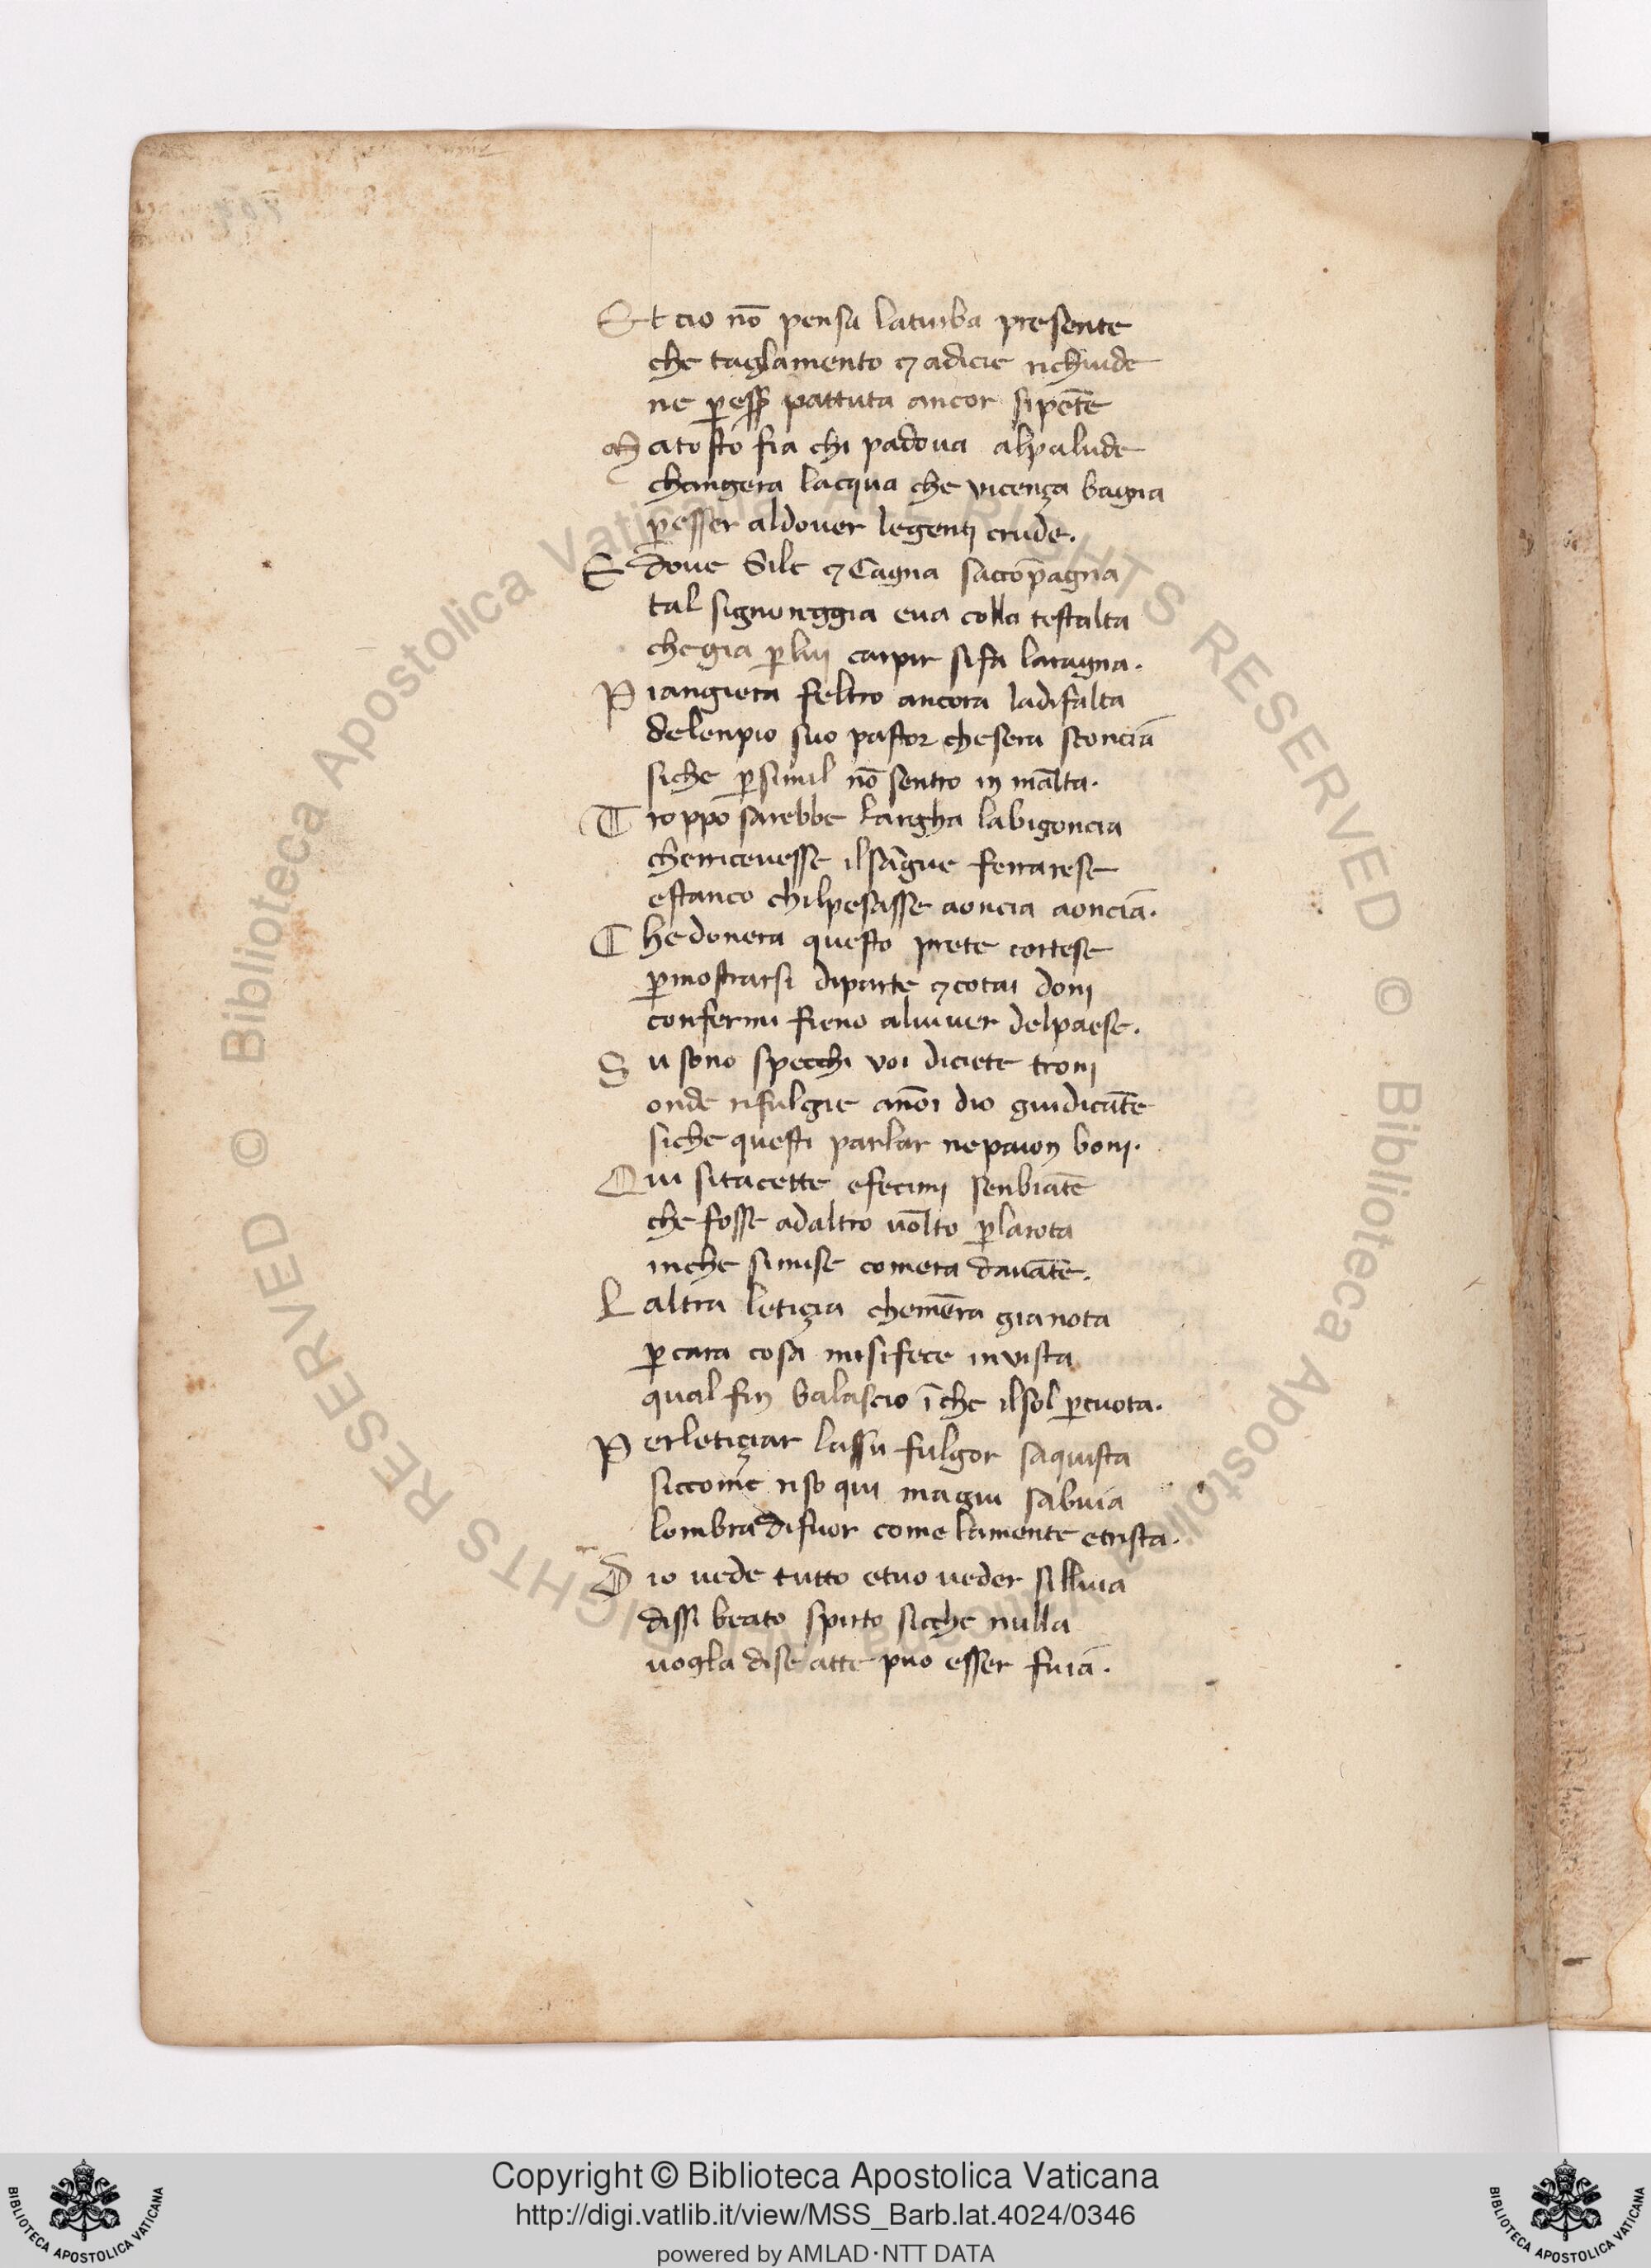 Et cio nō pensa laturba presente
che taglamento ⁊ adicie richiude
ne p̱ ess̱ pattuta ancor sipēte
Matosto fia chi padova alpalude
changera lacqua che vicença bagna
p̱esser aldover legenti crude.
E dove Sile ⁊ Cagna saccōpagna
tal signoreggia eva colla testalta
chegia p̱lui carpir sifa laragna.
Piangiera feltro ancora ladifalta
delenpio suo pastor chesera sconcia
siche p̱simil nō sentro in malta.
Troppo sarebbe largha labigoncia
chericevesse ilsāgue ferrarese
estanco chilpesasse aoncia aoncia.
Chedonera questo prete cortese
p̱mostrarsi diparte ⁊ cotai doni
confermi fieno alviver delpaese.
Su sono specchi voi diciete troni
onde rifulgie anoi dio giudicāte
siche questi parlar nepaion boni.
Qui sitacette efecimi senbiāte
che fosse adaltro volto p̱larota
inche simise comera davāte.
Laltra letiçia chemera gianota
p̱ cara cosa misifece invista
qual fin balascio īche ilsol p̱cuota.
Perletiçiar lassu fulgor saquista
siccome riso qui magiu sabuia
lombra difuor come lamente etrista.
Dio vede tutto etuo veder silluia
dissi beato spirto sicche nulla
vogla dise atte puo esser fuia.
Copyright © Biblioteca Apostolica Vaticana
http://digi.vatlib.it/view/MSS_Barb.lat.4024/0346
powered by AMLAD·NTT DATA
BIBLIOTECA APOSTOLICA VATICANA
BIBLIOTECA APOSTOLICA VATICANA